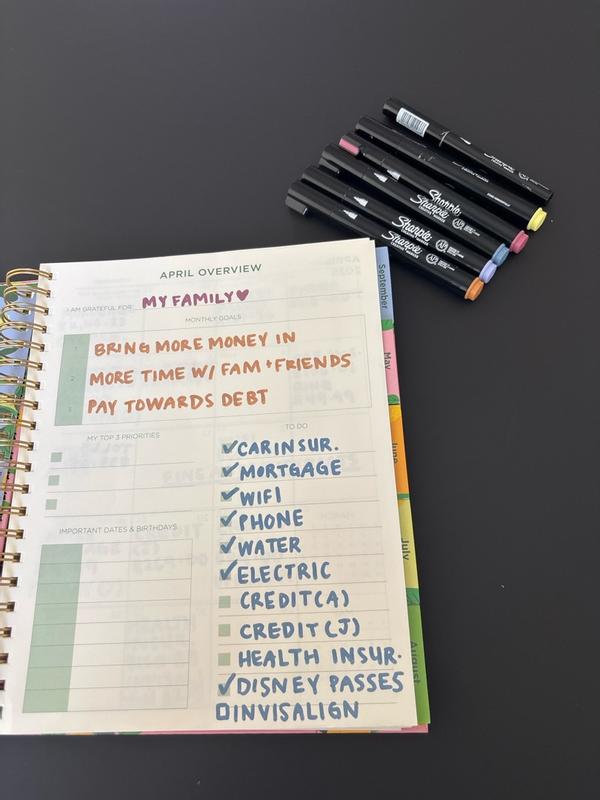 Sharpie
Sharpie
Sharpie
APRIL OVERVIEW
I AM GRATEFUL FOR: MY FAMILY♥
MONTHLY GOALS
1 BRING MORE MONEY IN
2 MORE TIME W/ FAM + FRIENDS
3 PAY TOWARDS DEBT
MY TOP 3 PRIORITIES
TO DO
✓CAR INSUR.
✓MORTGAGE
✓WIFI
✓PHONE
✓WATER
✓ELECTRIC
CREDIT (A)
CREDIT (J)
HEALTH INSUR.
✓DISNEY PASSES
INVISALIGN
IMPORTANT DATES & BIRTHDAYS
September
May
June
July
August